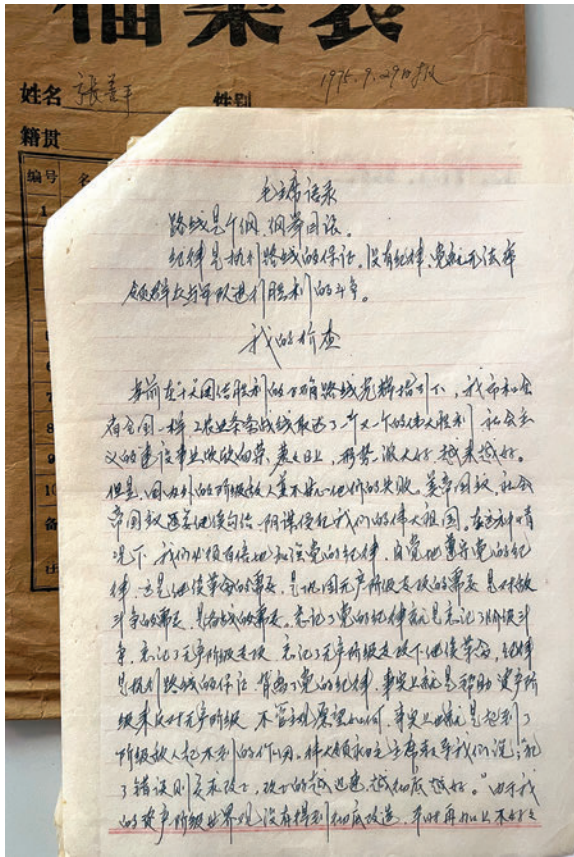 档案袋
姓名 张 平
性别
1975.9.29日
籍贯
编号 名
1
6
7
8
9
10
备
注
毛主席语录
路线是个纲,纲举目张。
纪律是执行路线的保证。没有纪律,党就无法率
领群众与军队进行胜利的斗争。
我的检查
当前在十大团结胜利的正确路线光辉指引下,我市和全
省全国一样 工农业条条战线取得了一个又一个的伟大胜利 社会主
义的建设事业欣欣向荣,蒸蒸日上,形势 大好 越来越好。
但是,国内外的阶级敌人是不甘心他们的失败。美帝国主义,社会
帝国主义还在继续勾结 阴谋侵犯我们的伟大祖国。在这种情
况下 我们必须百倍地加强党的纪律,自觉地遵守党的纪
律,这是继续革命的需要,是巩固无产阶级专政的需要 是对敌
斗争的需要,是备战的需要。忘记了党的纪律就是忘记了阶级斗
争,忘记了无产阶级专政 忘记了无产阶级专政下继续革命,纪律
是执行路线的保证 背离了党的纪律,事实上就是帮助资产阶
级来反对无产阶级 不管主观愿望如何,事实上也就是起到了
阶级敌人起不到的作用,伟大领袖毛主席教导我们说:“犯
了错误则要求改正,改正的越迅速,越彻底 越好。”由于我
的资产阶级世界观没有得到彻底改造,平时再加上不好